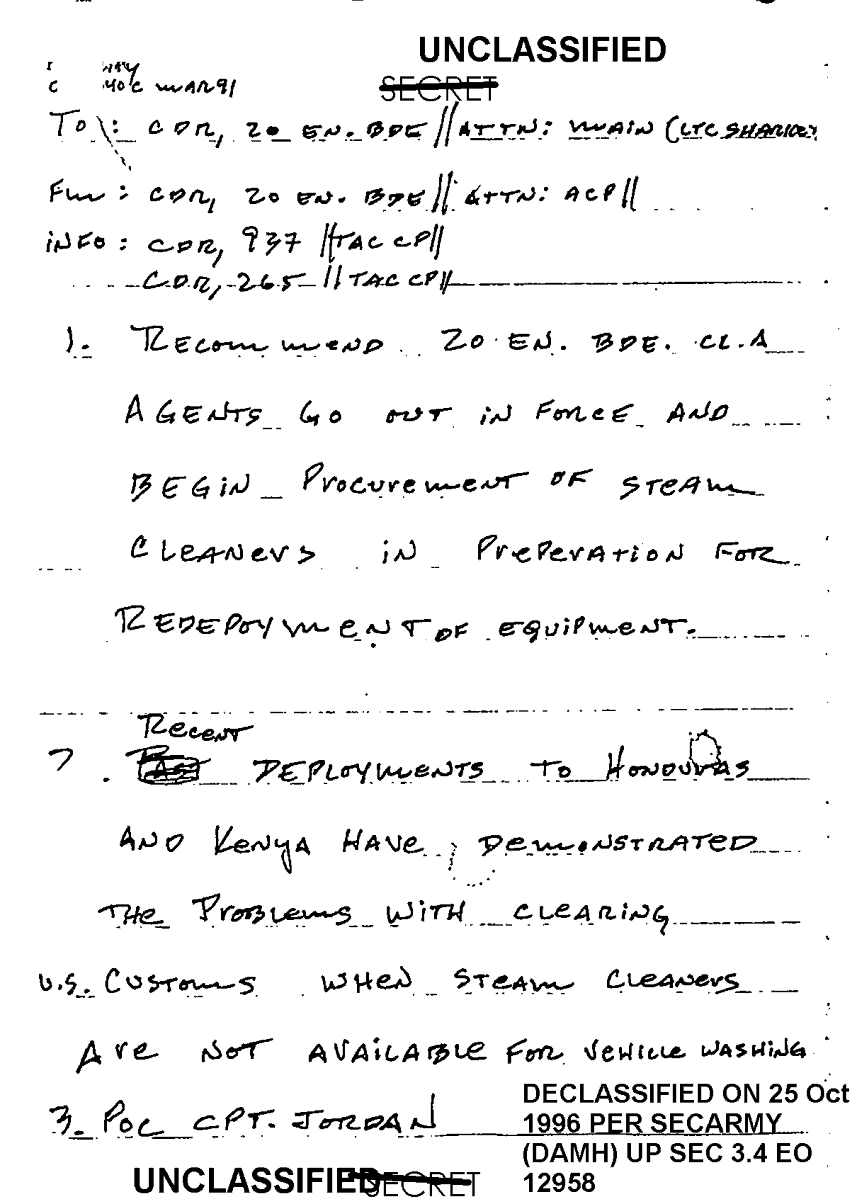 UNCLASSIFIED
SECRET
MAR 91
TO: CDR, 20 EN. BDE // ATTN: MAIN (LTC
FM: CDR, 20 EN. BDE // ATTN: ACP//
INFO: CDR, 937 //TAC CP//
CDR, 265 // TAC CP//
1. RECOMMEND 20 EN. BDE. CL.A
AGENTS GO OUT IN FORCE AND
BEGIN PROCUREMENT OF STEAM
CLEANERS IN PREPERATION FOR
REDEPOYMENT OF EQUIPMENT.
RECENT
DEPLOYMENTS TO HONDURAS
AND KENYA HAVE DEMONSTRATED
THE PROBLEMS WITH CLEARING
U.S. CUSTOMS WHEN STEAM CLEANERS
ARE NOT AVAILABLE FOR VEHICLE WASHING
3. POC CPT. JORDAN
DECLASSIFIED ON 25 Oct
1996 PER SECARMY
(DAMH) UP SEC 3.4 EO
12958
UNCLASSIFIED SECRET